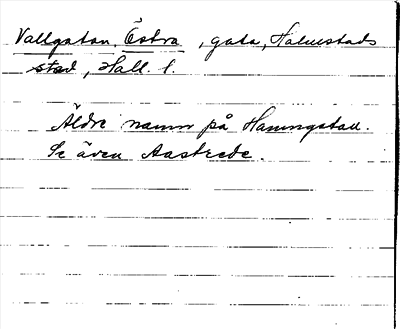 Vallgatan, Östra, gata, Halmstads
stad, Hall. l.
Äldre namn på Hamngatan.
Se även Aastrede.